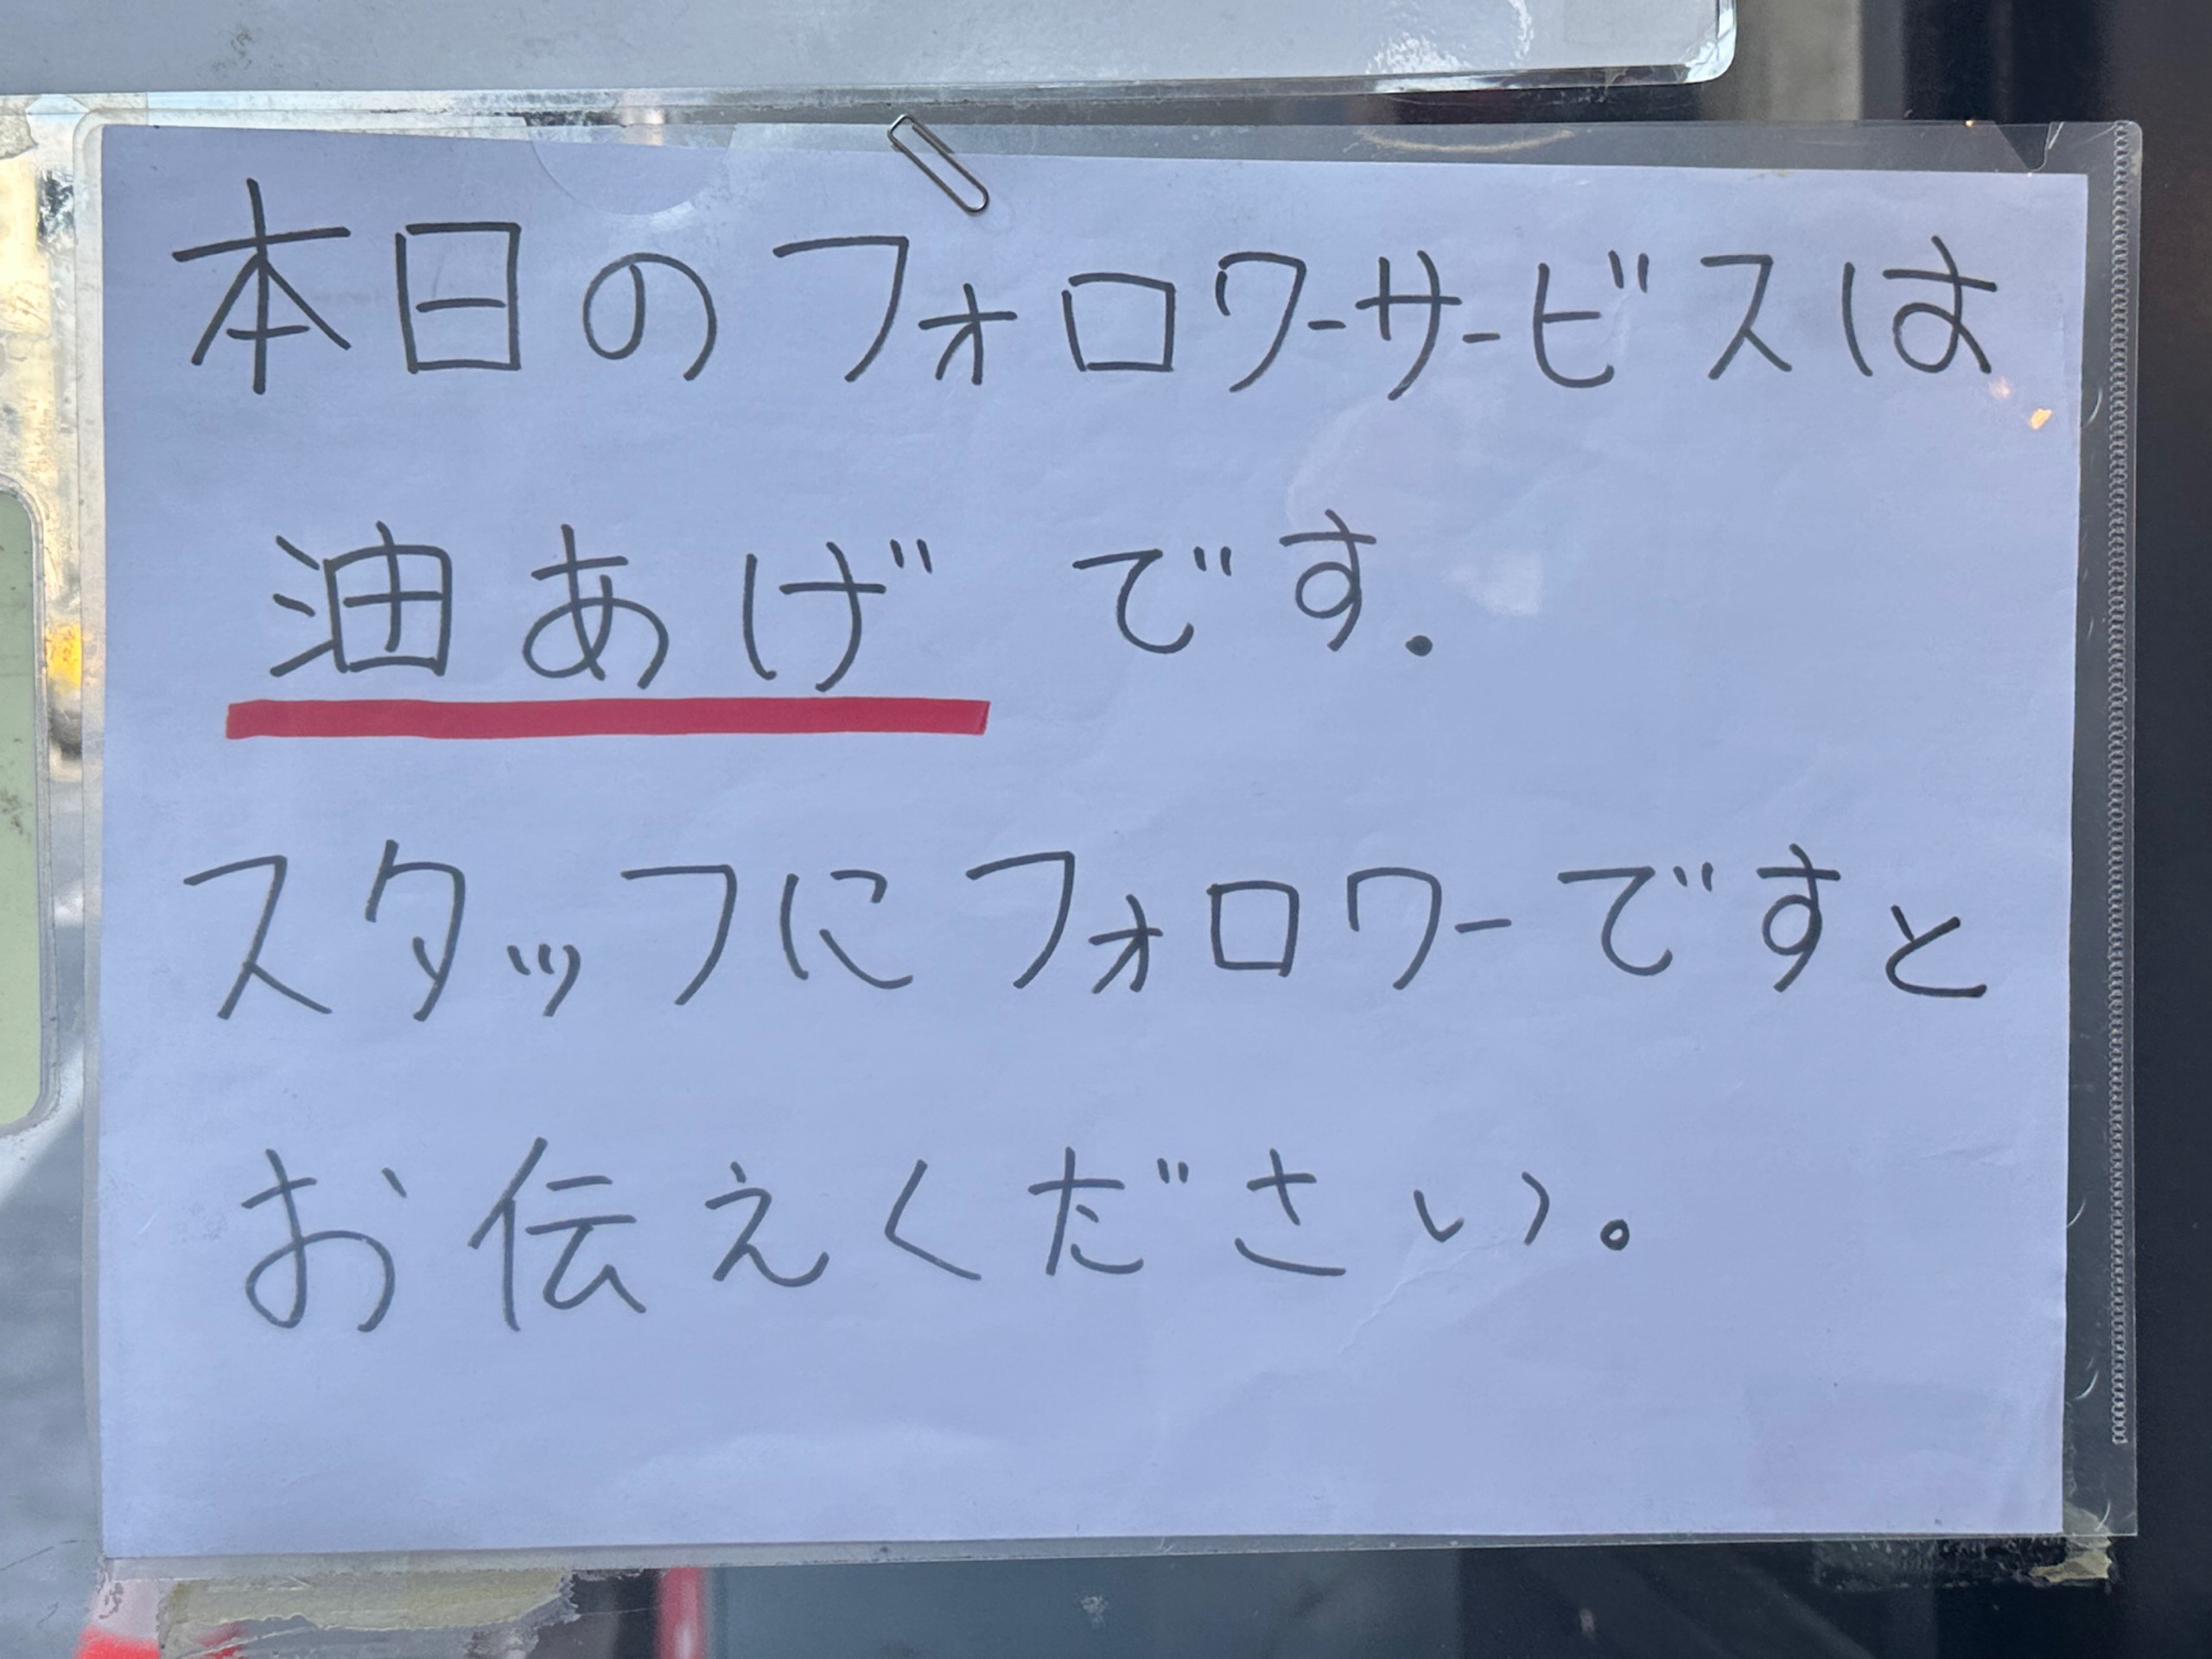 本日のフォロワーサービスは
油あげです.
スタッフにフォロワーですと
お伝えください。